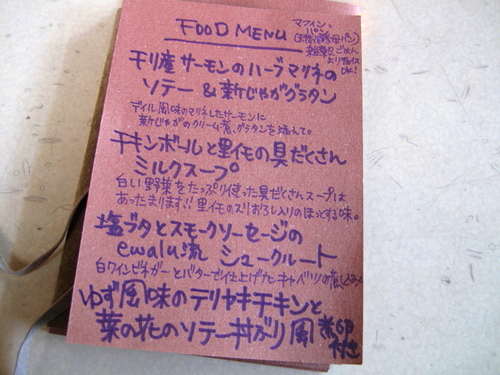 FOOD MENU
マフィン、
パン
(天然酵母パン)
雑穀ごはん
より指定
OK!
チリ産サーモンのハーブマリネの
ソテー & 新じゃがグラタン
ディル風味のマリネしたサーモンに
新じゃがのクリーム煮、グラタンを添えて。
チキンボールと里イモの具だくさん
ミルクスープ
白い野菜をたっぷり使った具だくさんスープは
あったまります!! 里イモのスリおろし入りのほっとする味。
塩ブタとスモークソーセージの
ewalu流 シュークルート
白ワインビネガーとバターで仕上げたキャベツの煮込み
ゆず風味のテリヤキチキンと
菜の花のソテー丼ぶり風 煮卵
付き